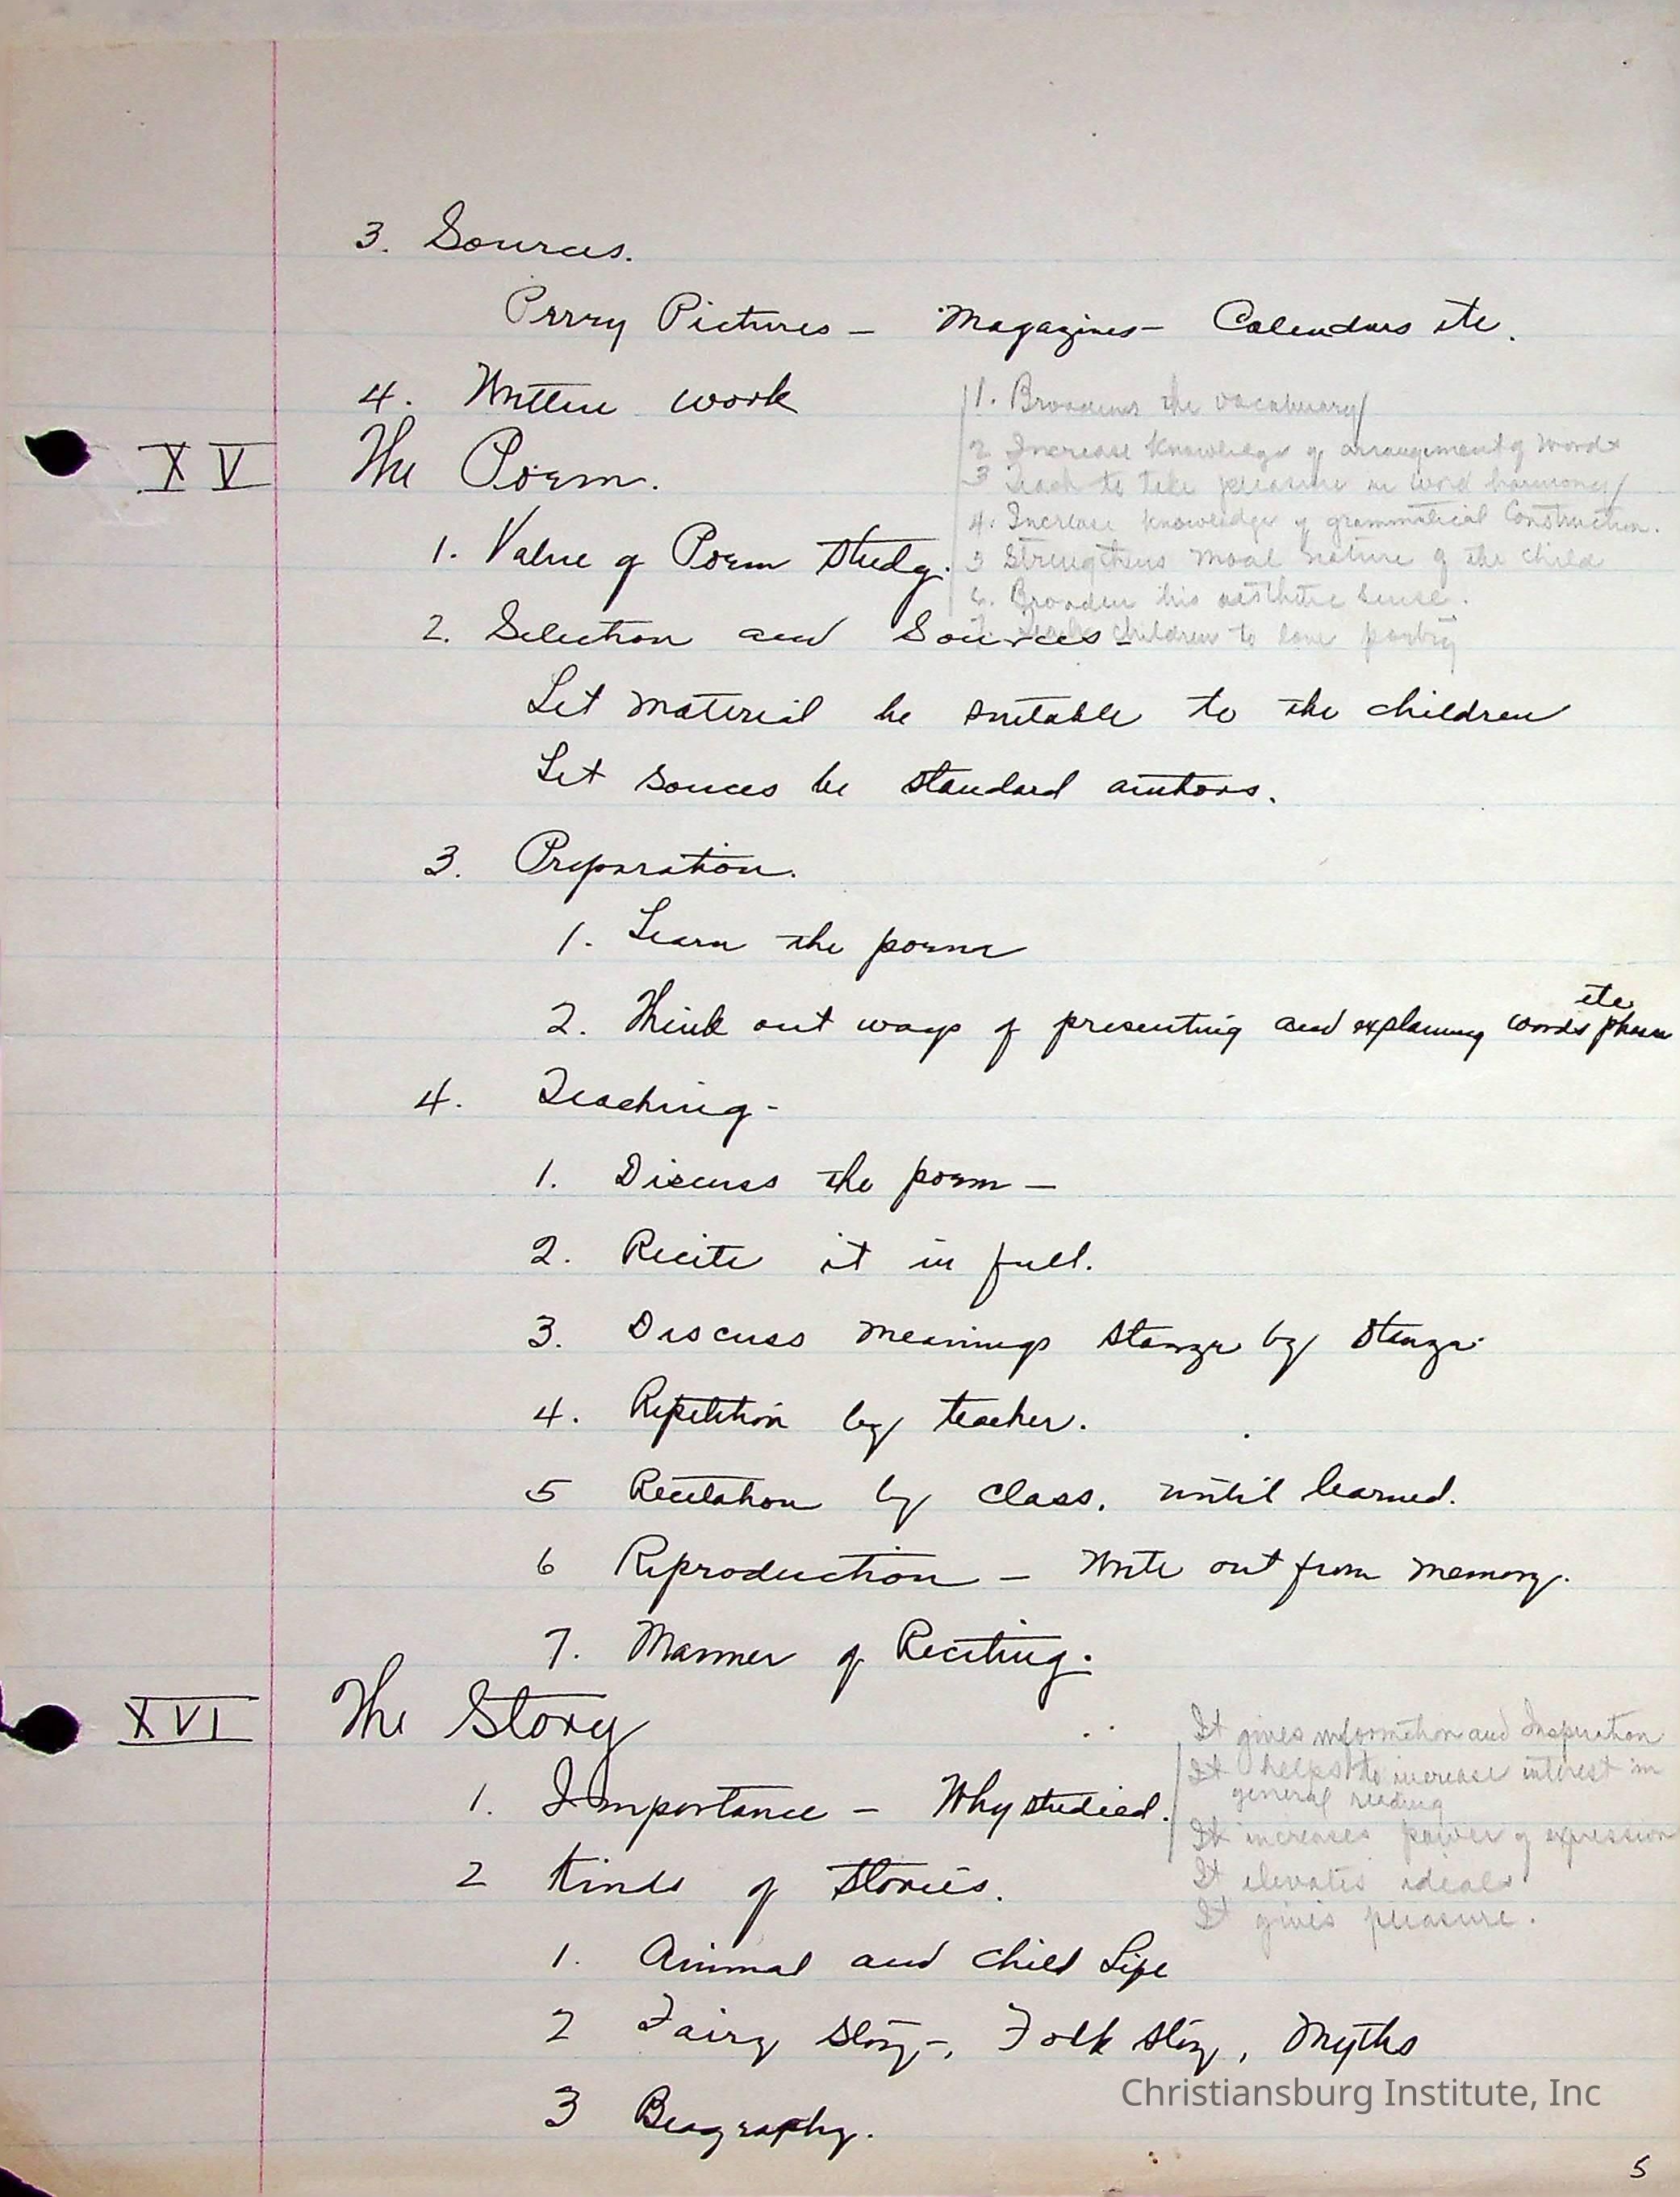 3. Sources.
Perry Pictures — Magazines — Calendars etc.
4. Written work
XV The Poem.
1. Value of Poem Study.
1. Broadens the vocabulary
2 Increase knowledge of arrangement of words
3 Teach to take pleasure in word harmony
4. Increase knowledge of grammatical Construction.
5 Strengthens moral nature of the child
6. Broaden his aesthetic sense.
7 Teach children to love poetry
2. Selection and Sources -
Let material be suitable to the children
Let souces be standard authors.
3. Preparation.
1. Learn the poem
2. Think out ways of presenting and explaining words phrases etc
4. Teaching -
1. Discuss the poem —
2. Recite it in full.
3. Discuss meanings stanza by stanza
4. Repetition by teacher.
5 Recitation by class, until learned.
6 Reproduction — Write out from memory.
7. Manner of Reciting.
XVI The Story
1. Importance — Why studied.
It gives information and Inspiration
It helps to increase interest in
general reading
It increases power of expression
It elevates ideals
It gives pleasure.
2 Kinds of Stories.
1. Animal and Child Life
2 Fairy Story-, Folk Story, Myths
3 Biography.
Christiansburg Institute, Inc
5